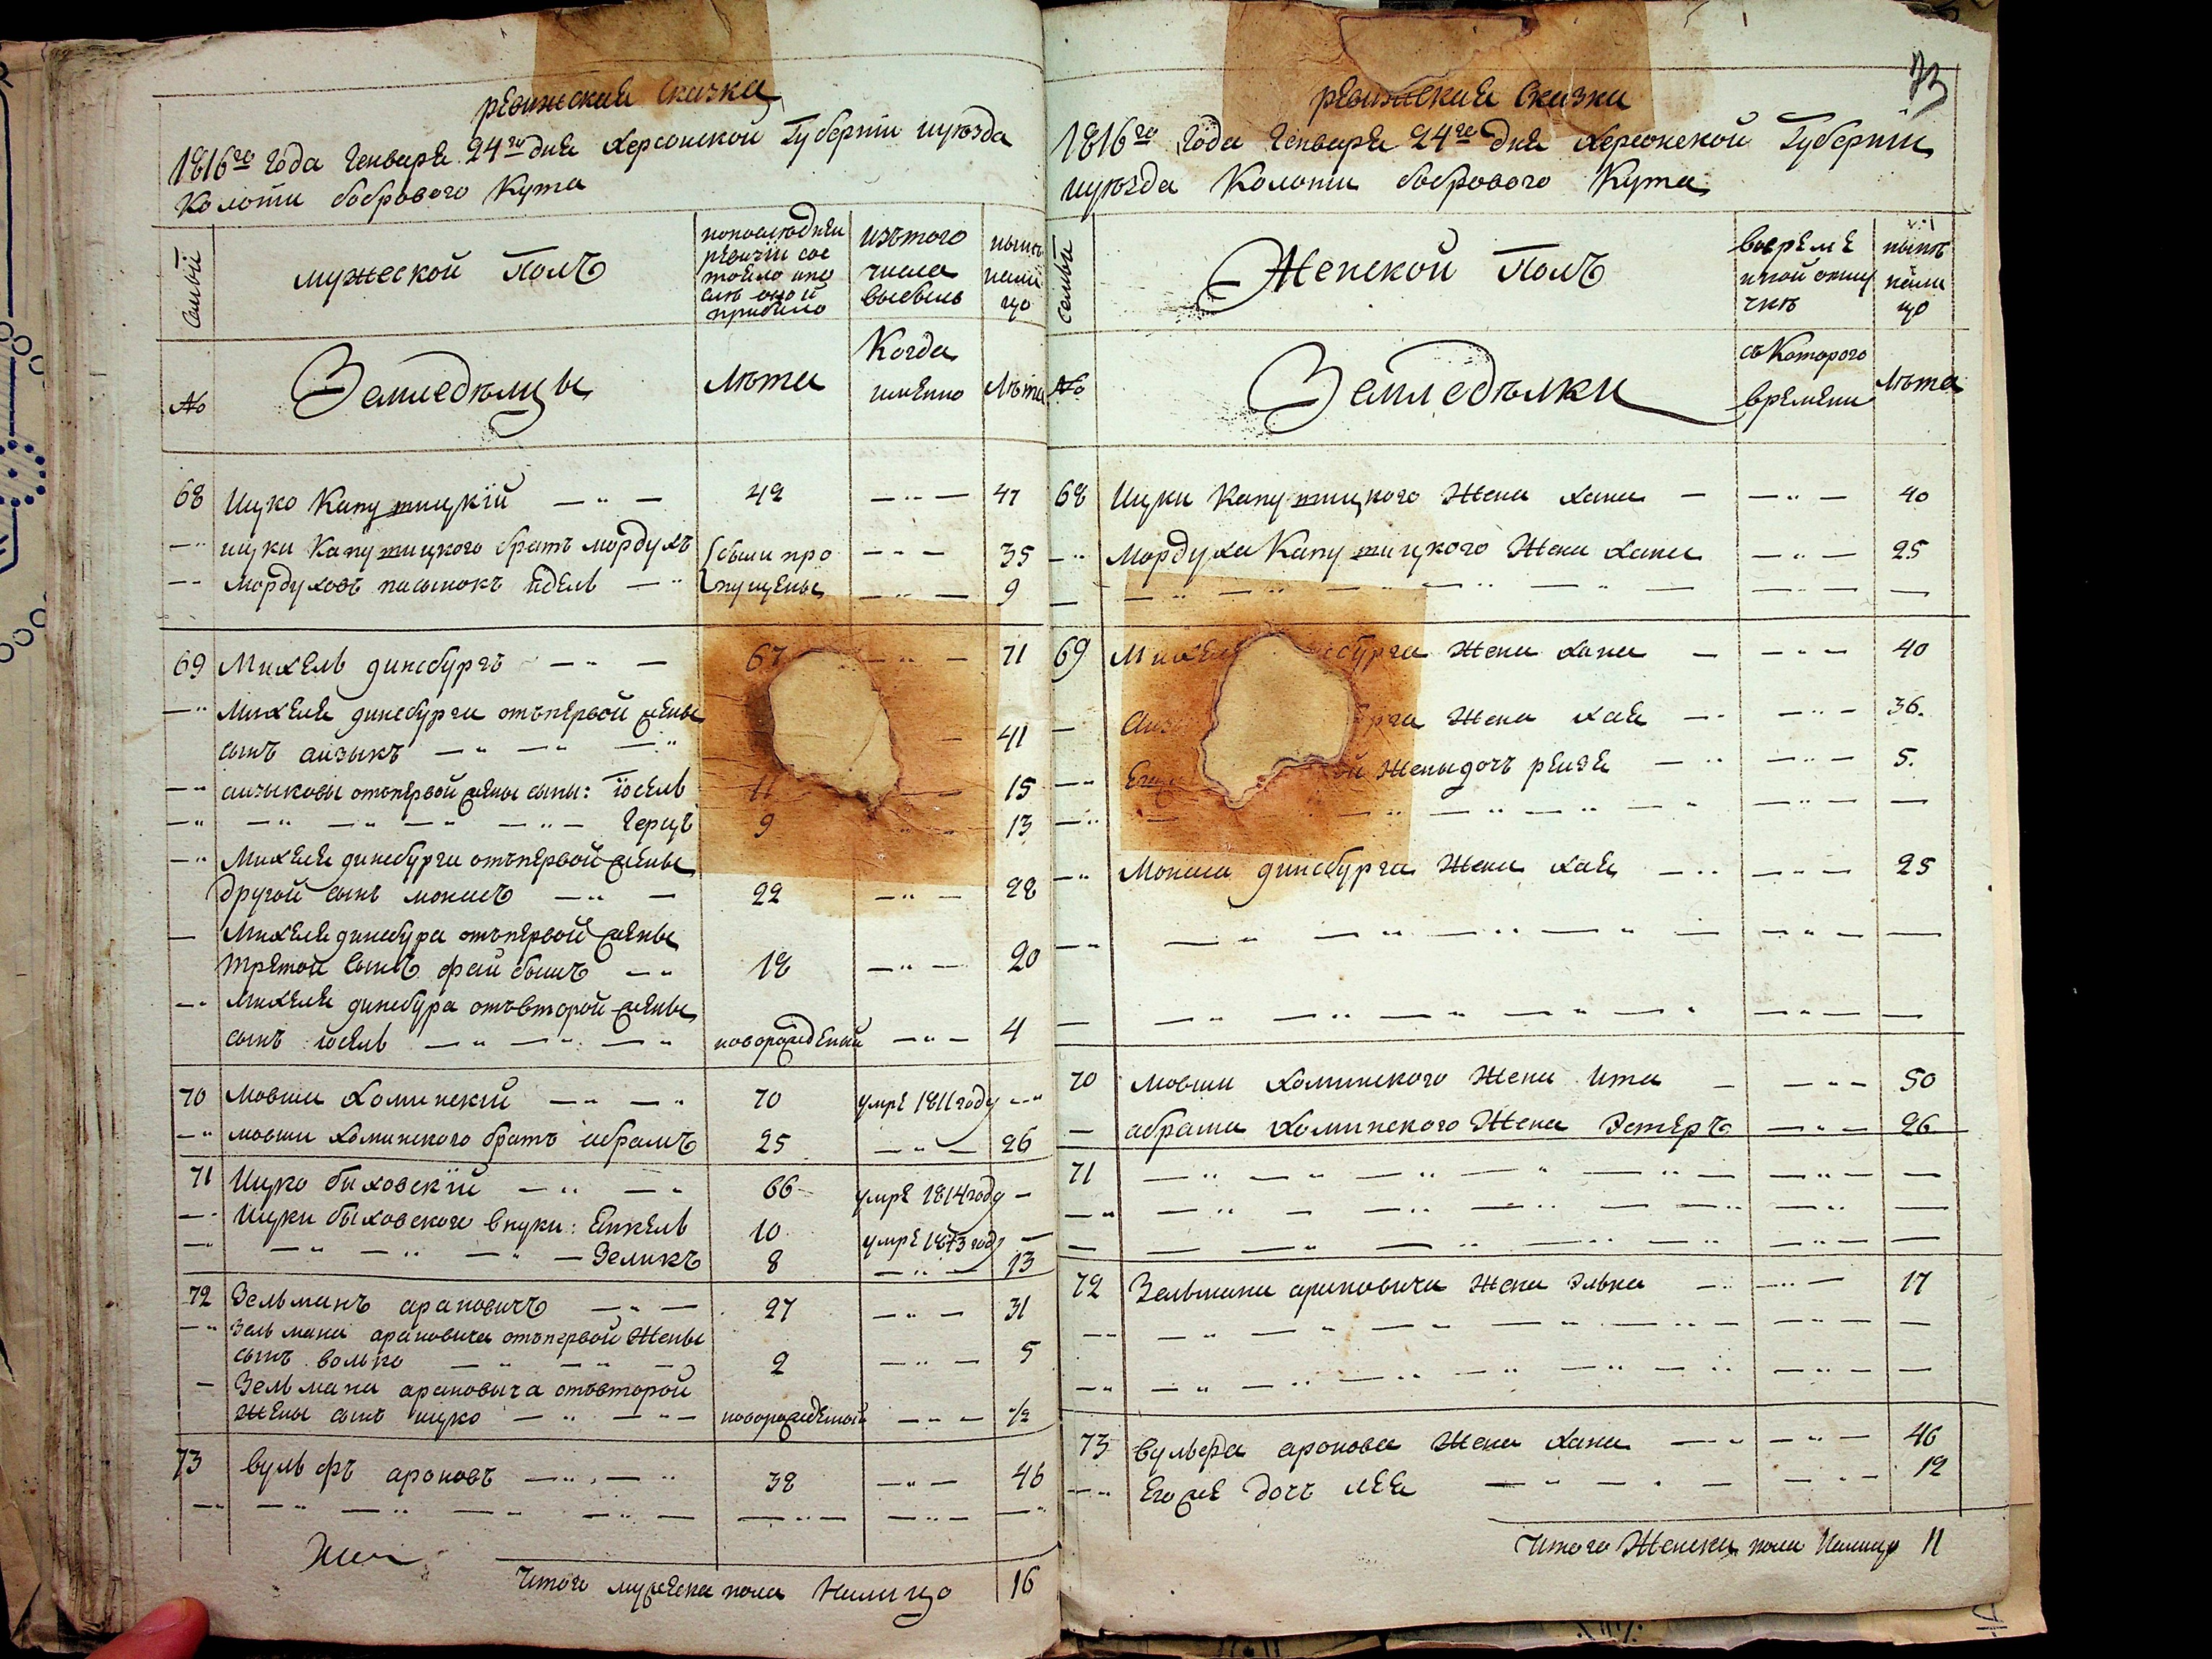 ревижская сказка
1816го года Генваря 24го дня Херсонской Губернїи иуѣзда
Колонїи боброваго Кута
Семьи
мужеской Полъ
попоследней
ревизїи сос
тояло ипо
слѣ оной
прибыло
изътого
числа
выбыло
нынѣ
нали
цо
№
Земледѣлицы
Лѣта
Когда
имянно
Лѣта
68 Ицко Капустицкїй 42 47
ицки Капустицкого братъ мордухъ были про 35
мордуховъ пасынокъ Идель пущены 9
69 Михель динсбургъ 67 71
Михеля динсбурга отъпервой жены
сынъ айзыкъ 41
айзыковы отъпервой жены сыны: Iосель 11 15
Герцъ 9 13
Михеля динсбурга отъпервой жены
другой сынъ моншъ 22 28
Михеля динсбура отъпервой жены
третой сынъ файбышъ 18 20
Михеля динсбура отъвторой жены
сынъ іосель новорожденый 4
70 Мовша Хоминскїй 70 умре 1811 году
мовши хоминского братъ абрамъ 25 26
71 Ицко быховскїй 66 умре 1814 году
Ицки быховского внуки: Янкель 10 умре 1873 год
Зеликъ 8 13
72 Зельманъ арановичъ 27 31
Зельмана арановича отъпервой Жены
сынъ волько 2 5
Зельмана арановича отъвторой
Жены сынъ ицко новорожденый 1/2
73 вульфъ ароновъ 38 46
Итого мужеска пола Налицо 16
73
ревижская сказка
1816го года Генваря 24го дня Херсонской Губернїи
иуѣзда Колонїи боброваго Кута
Семьи
Женской Полъ
вовреме
нной отлу
чкѣ
нынѣ
нали
цо
№
Земледѣлки
съ Которого
времени
Лѣта
68 Ицки Капустицкого Жена хана 40
Мордуха Капустицкого Жена хана 25
69 Михеля бурга Жена хана 40
Айз рга Жена хая 36.
Его ой Жены дочь рейзя 5.
Монша динсбурга Жена хая 25
70 мовши хоминского Жена Ита 50
абрама хоминского Жена Эстеръ 26
71
72 Зельмана арановича Жена Элька 17
73 вульфа аронова Жена хана 46
Его же дочъ лея 12
Итого Женска пола Налицо 11